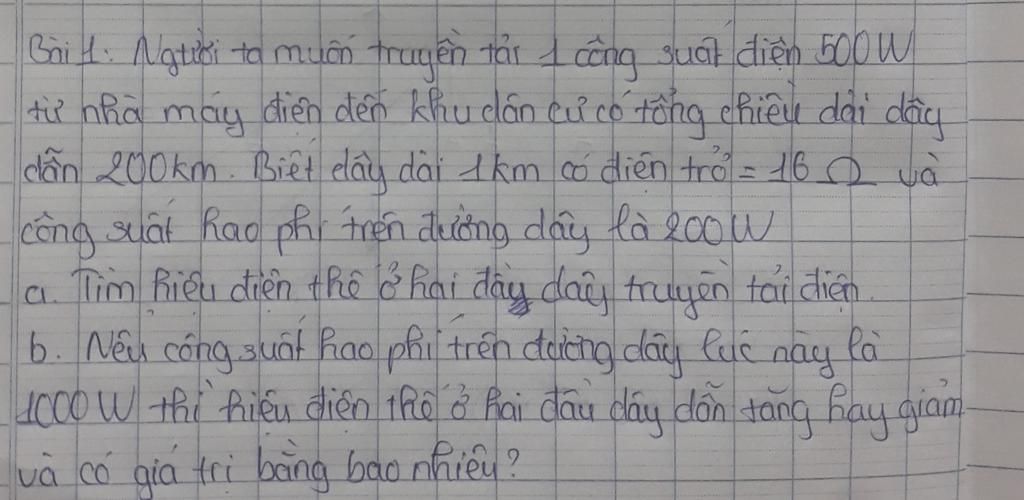 Bài 1: Người ta muốn truyền tải 1 công suất điện 500W
từ nhà máy điện đến khu dân cư có tổng chiều dài dây
dẫn 200km. Biết dây dài 1km có điện trở = 16 Ω và
công suất hao phí trên đường dây là 200W
a. Tìm hiệu điện thế ở hai đầu dây truyền tải điện.
b. Nếu công suất hao phí trên đường dây lúc này là
1000W thì hiệu điện thế ở hai đầu dây dẫn tăng hay giảm
và có giá trị bằng bao nhiêu?